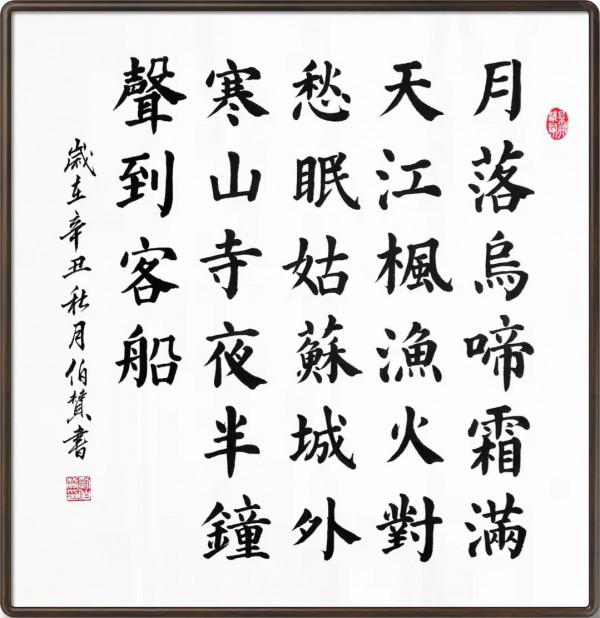 月落烏啼霜滿
天江楓漁火對
愁眠姑蘇城外
寒山寺夜半鐘
聲到客船
歲在辛丑秋月伯贊書